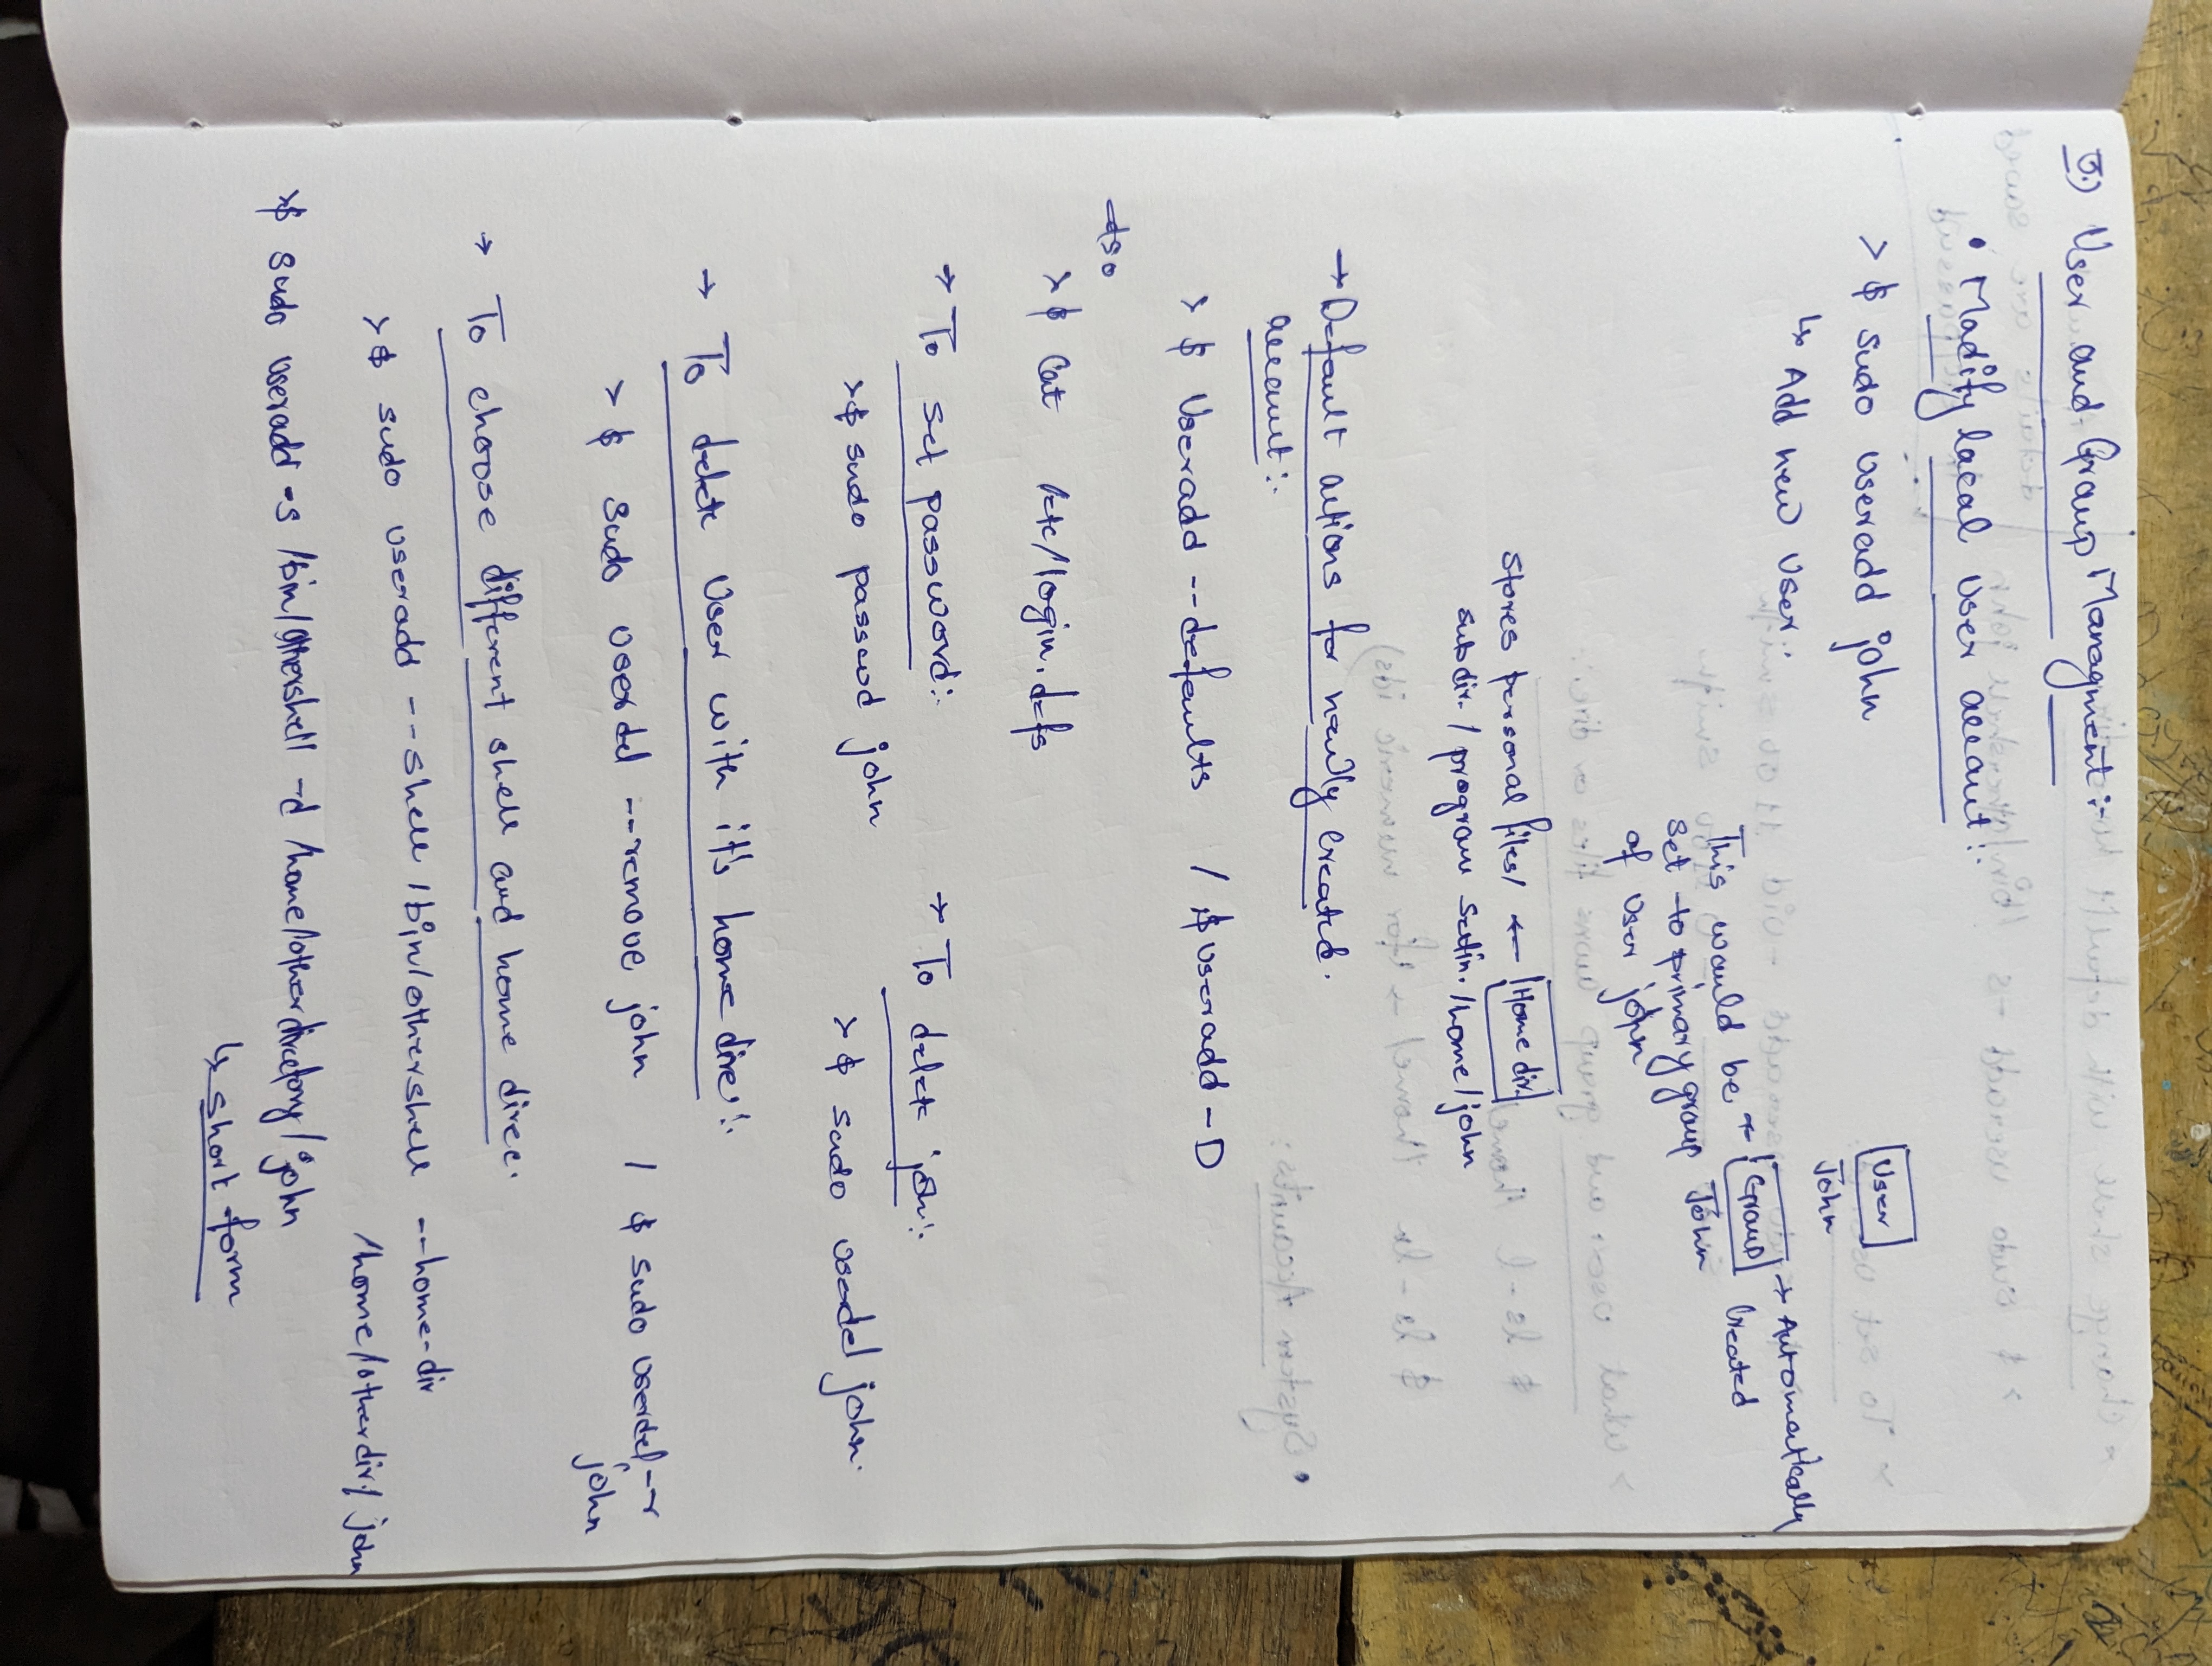 3.) User and Group Managment :-
• Modify local user account :-
> $ sudo useradd john
↳ Add new user :-
User
John
Group → Automatically
John created
This would be ←
set to primary group
of user john
Stores personal files/ ← Home dir.
subdir. / program settin. /home/john
→ Default actions for newly created
account :-
> $ useradd --defaults / $ useradd -D
> $ cat /etc/login.defs
→ To set password :-
> $ sudo passwd john
→ To delete john :-
> $ sudo userdel john.
→ To delete user with it's home dire :-
> $ sudo userdel --remove john / $ sudo userdel -r
john
→ To choose different shell and home direc.
> $ sudo useradd --shell /bin/othershell --home-dir
/home/otherdir/john
> $ sudo useradd -s /bin/othershell -d /home/otherdirectory/john
↳ short form